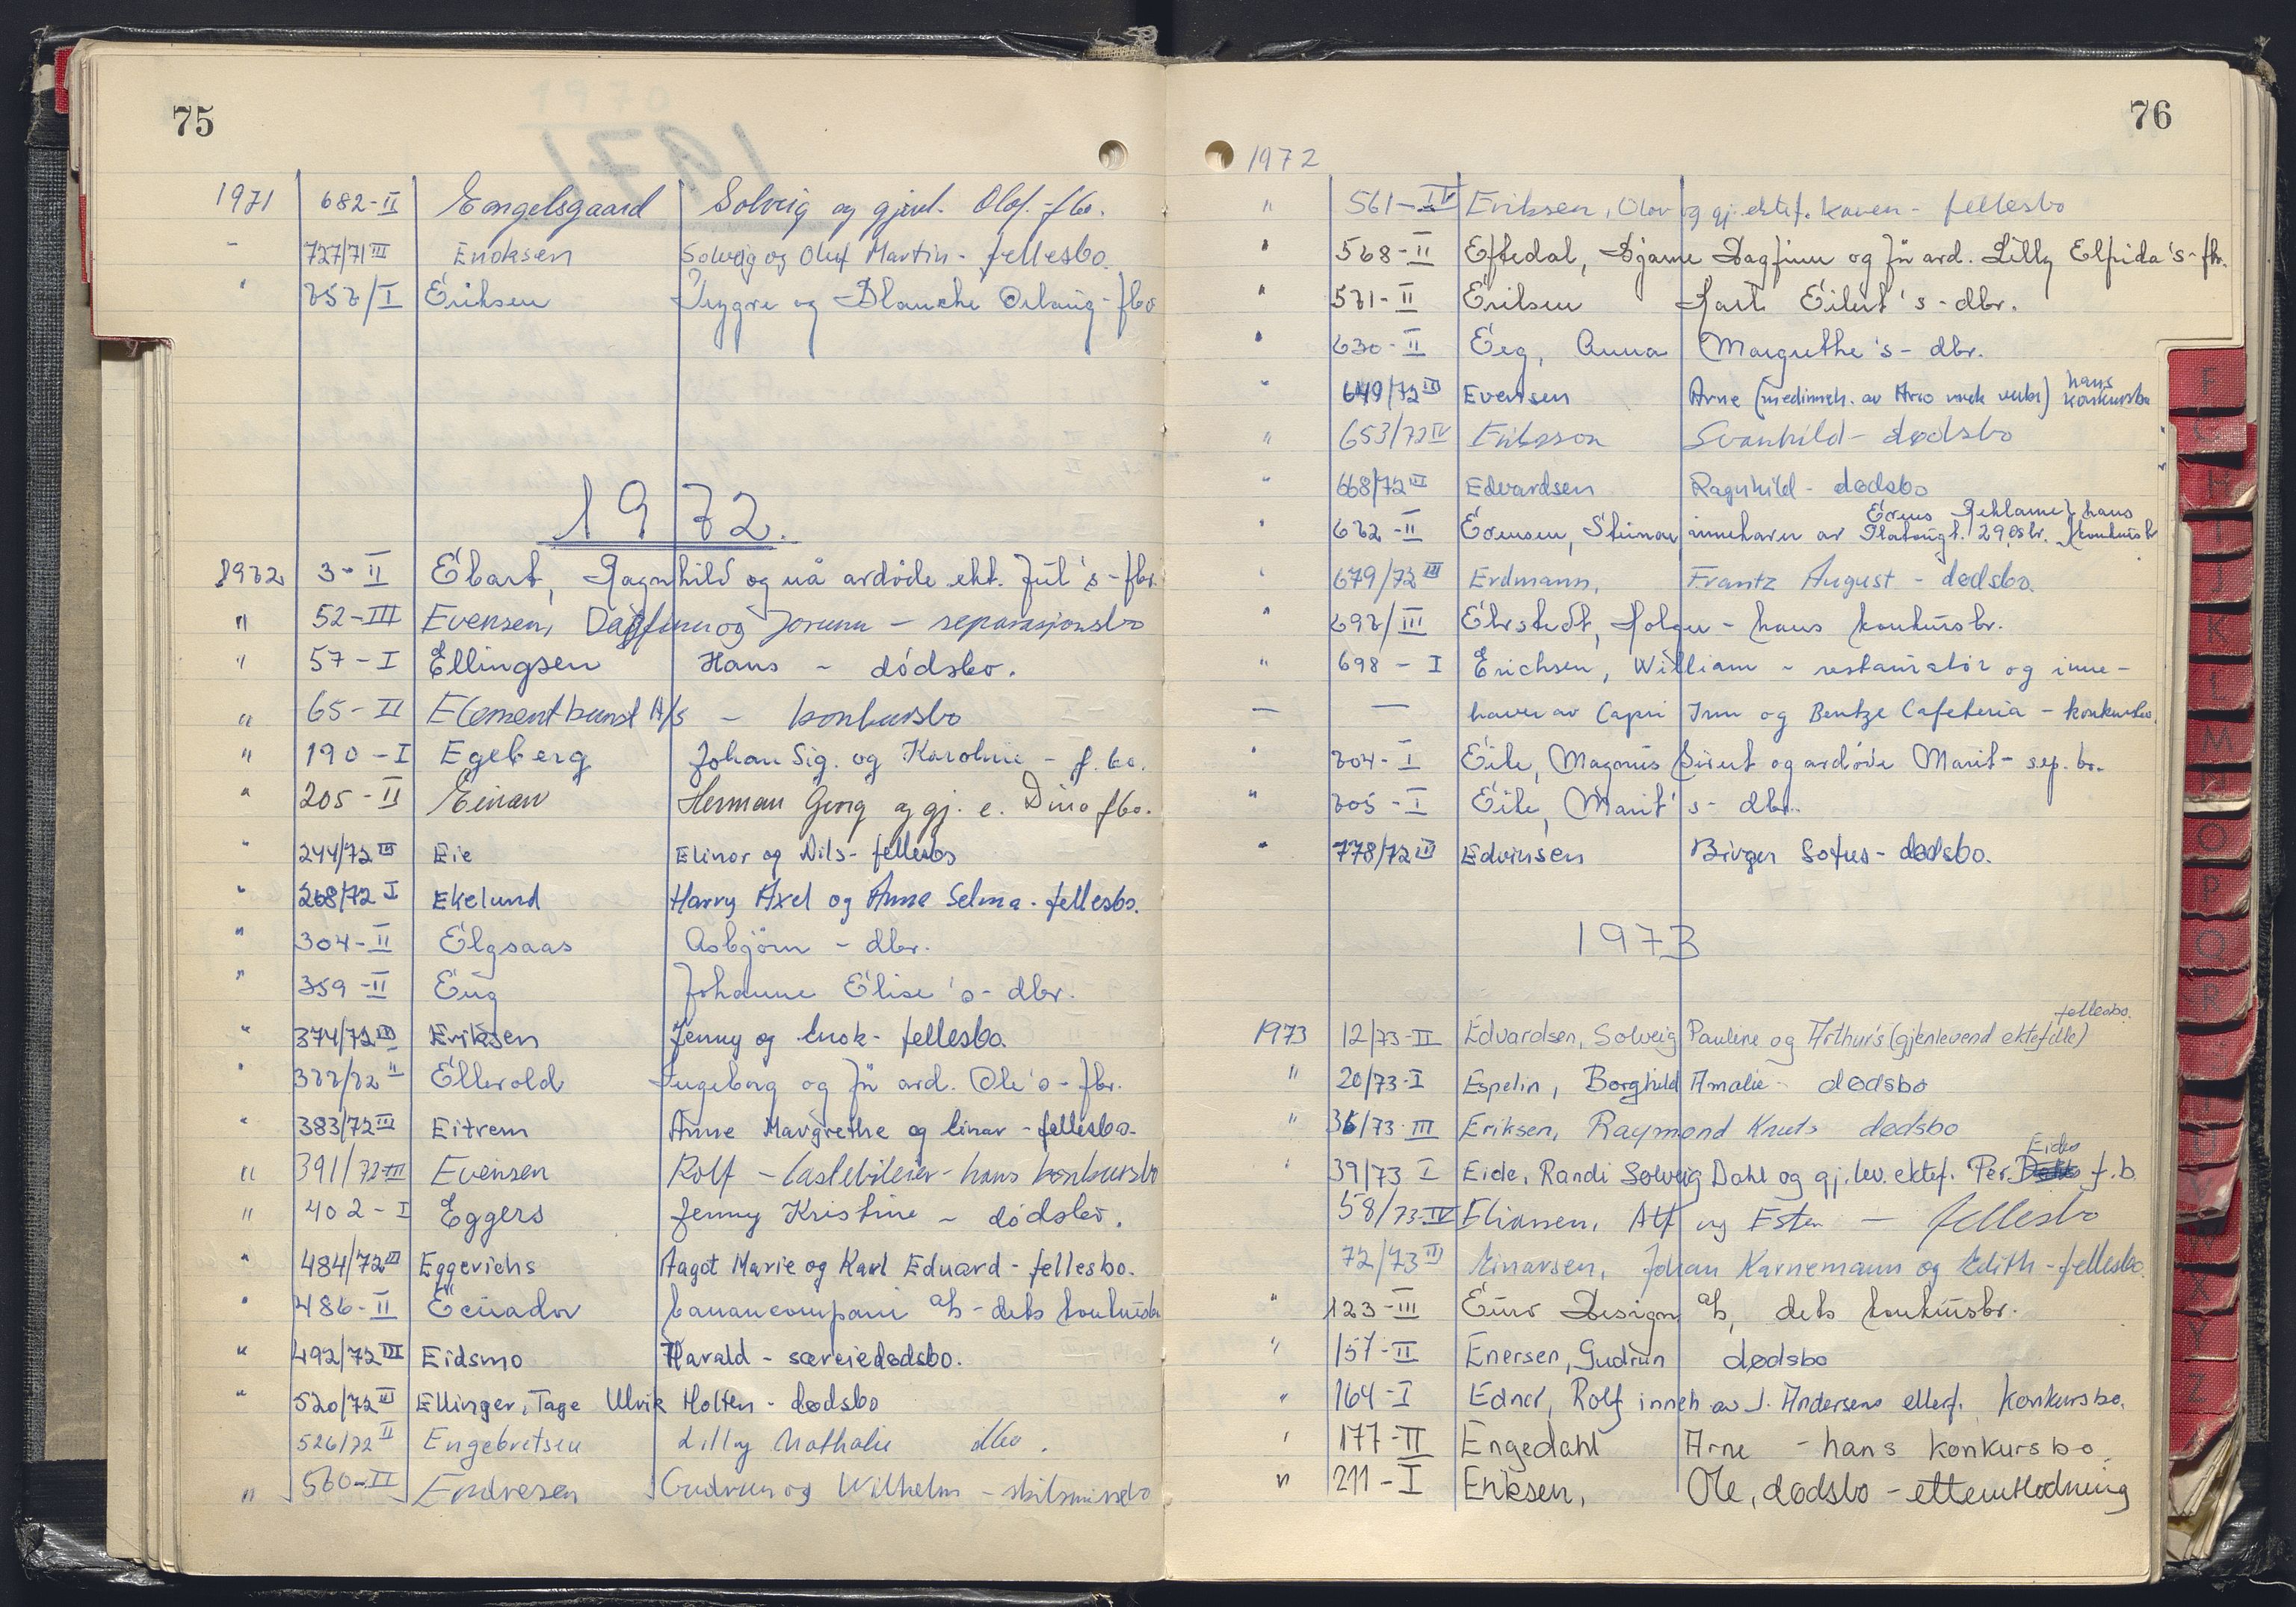 75
1971 682-II Engelsgaard Solveig og gjenl. Olof. fbo.
- 727/71 III Enoksen Solveig og Oluf Martin - fellesbo.
" 757/I Eriksen Trygve og Blanche Oclaug - fbo
1972.
1972 3-II Ebart, Ragnhild og nå avdøde ekt. Jul's - fbr.
" 52-III Evensen, Dagfinn og Jorunn - separasjonsbo
" 57-I Ellingsen Hans - dødsbo.
" 65-II Elementkunst A/s - konkursbo
" 190-I Egeberg Johan Sig. og Karoline - f.bo.
" 205-II Einan Herman Georg og gj. e. Dina fbo.
" 244/72 III Eie Elinor og Nils - fellesbo
" 268/72 I Ekelund Harry Axel og Anna Selma - fellesbo.
" 304-II Elgsaas Asbjörn - dbr.
" 359-II Eng Johanne Elise's - dbr.
" 374/72 III Eriksen Jenny og Enok - fellesbo.
" 377/72 II Ellevold Ingeborg og før avd. Ole's - fbr.
" 383/72 III Eitrem Anne Margrethe og Einar - fellesbo.
" 391/72-III Evensen Rolf - lastebileier - hans konkursbo
" 402-I Eggers Jenny Kristine - dødsbo.
" 484/72 III Eggerichs Aagot Marie og Karl Eduard - fellesbo.
" 486-II Ecuador banancompani a/s - dets konkursbo
" 492/72 III Eidsmo Harald - særeiedødsbo.
" 520/72 III Ellinger, Tage Ulrik Holten - dødsbo
526/72 II Engebretsen Lilly Nathalie dbo.
" 560-II Endresen Gudrun og Wilhelm - skilsmissebo
76
1972
" 561-IV Eriksen, Olav og gj. ektef. Karen - fellesbo
" 568-II Eftedal, Bjarne Dagfinn og før avd. Lilly Elfrida's - fbr.
" 571-II Eriksen Karl Eilert's - dbr.
" 630-II Eeg, Anna Margrethe's - dbr.
" 649/72 III Evensen Arne (medinneh. av Arco mek verks) hans konkursbo
" 653/72 IV Eriksson Svanhild - dødsbo
" 668/72 III Edvardsen Ragnhild - dødsbo
Reklame} hans
" 672-II Evensen, Steinar innehaver av 29, Oslo. konkursbr
" 679/72 III Erdmann, Frantz August - dødsbo.
" 697/III Ehrstedt, Holger - hans konkursbr.
" 698-I Erichsen, William - restauratør og inne-
— — haver av Capri Inn og Bentze Cafeteria - konkursbo.
" 704-I Eile, Magnus Sivert og avdøde Marit - sep. bo.
" 705-I Eile, Marit's - dbr.
" 778/72 III Edvinsen Birger Sofus - dødsbo.
1973
fellesbo.
1973 12/73-II Edvardsen, Solveig Pauline og Arthur's (gjenlevend ektefelle)
" 20/73-I Espelin, Borghild Amalie - dødsbo
" 36/73-III Eriksen, Raymond Knuts dødsbo
Eides
" 39/73 I Eide, Randi Solveig Dahl og gj.lev. ektef. Per f.b.
58/73-IV Eliassen, Alf og Ester - fellesbo
72/73 III Einarsen, Johan Karnemann og Edith - fellesbo.
" 123-III Euro Design a/s, dets konkursbr.
" 157-II Enersen, Gudrun dødsbo
" 164-I Edner, Rolf inneh. av J. Andersens ellerf. Konkursbo.
" 177-II Engedahl Arne - hans konkursbo
" 211-I Eriksen, Ole, dødsbo - etterutlodning
F
H
I
J
K
L
M
O
P
Q
R
U
V
X
Y
Z